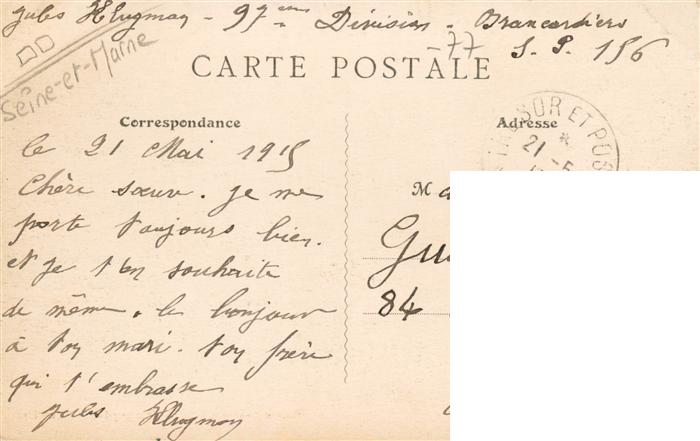 Jules Klugmay - 97ème Division - Brancardiers
- 77 S. P. 156
Seine-et-Marne
CARTE POSTALE
Correspondance
Adresse
TRÉSOR ET POS
*
21 -5
le 21 Mai 1915
Chère sœur. je me
porte toujours bien.
et je t'en souhaite
de même. le bonjour
à ton mari. ton frère
qui t'embrasse
Jules Klugmay
M
Gu
84